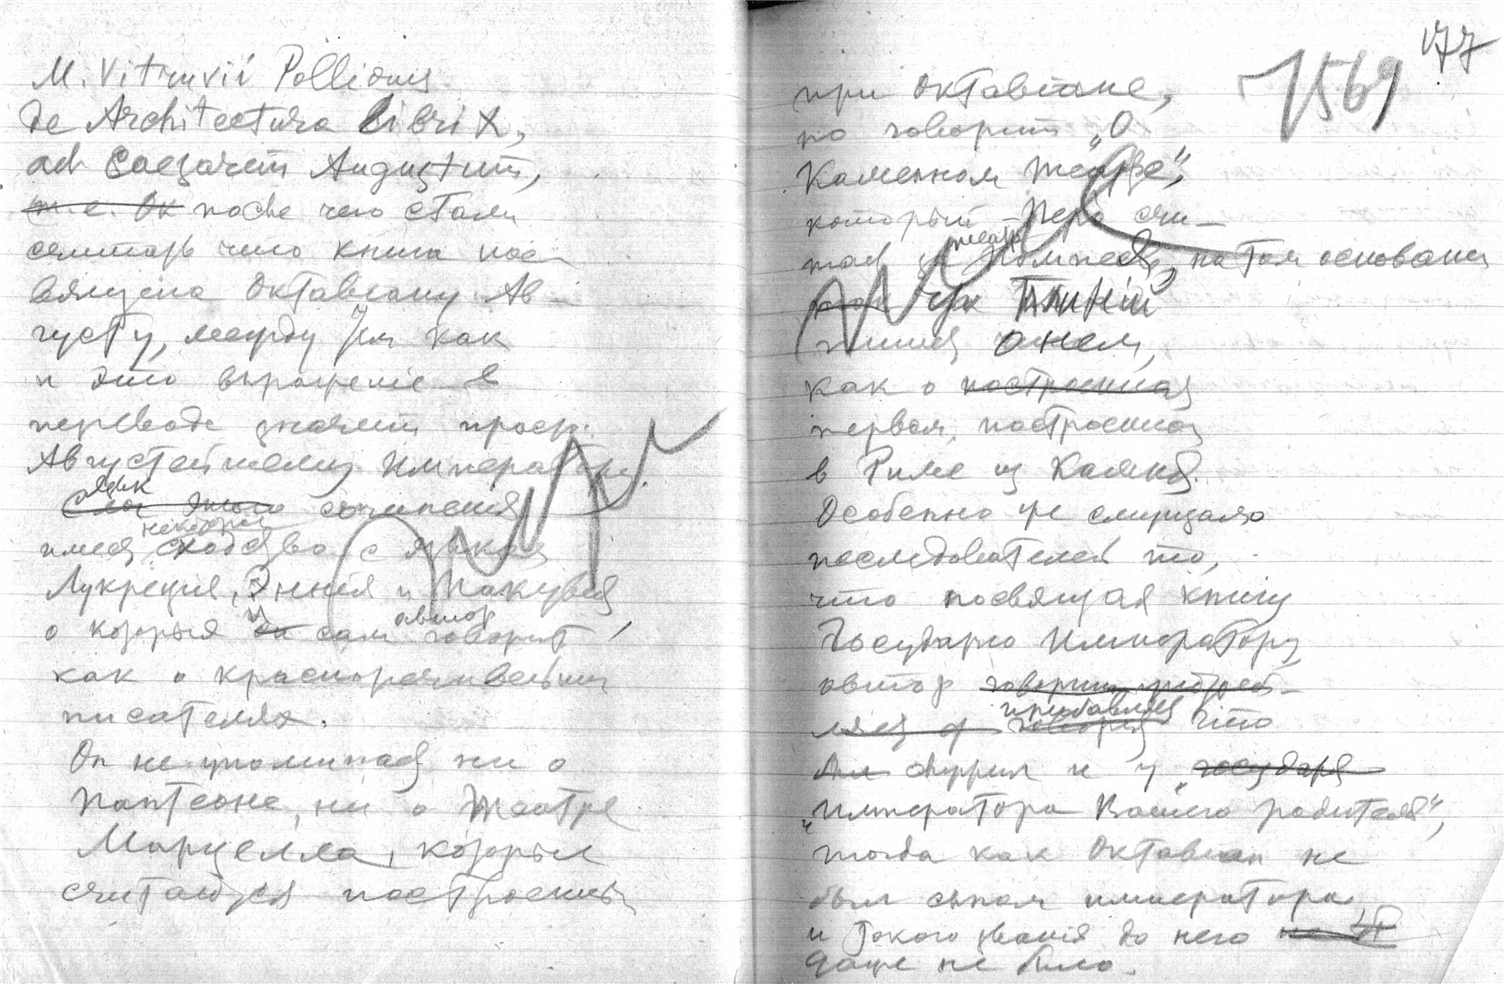 M. Vitruvii Pollionis
De Architectura Libri X,
ad Caezarem Augustum,
т.е. Ок после чего стали
считать что книга пос-
вящена Октавіану Ав-
густу, между тем как
и это выраженіе в
переводе значит просто:
Августейшему Императору.
язык
Слог этого сочинения
некоторое
имеет сходство с языком
Лукреция, Энния и Пакувия,
автор
о которых он сам говорит
как о красноречивейших
писателях.
Он не упоминает ни о
Пантеоне, ни о Театре
Марцелла, которые
считаются построены
177
1569
при Октавіане,
но говорит "О
Каменном театре",
который Перо счи-
театр
тал за Помпея, на том основании
что Плиній
пишет о нем,
как о построенном
первом, построенном
в Риме из Камня.
Особенно же смущало
последователей то,
что посвящая книгу
Государю Императору,
автор говорит употреб-
прибавляет
ляет говоря что
он служил и у государя
"Императора Вашего родителя",
тогда как Октавиан не
был сыном императора,
и такого званія до него не
даже не было.